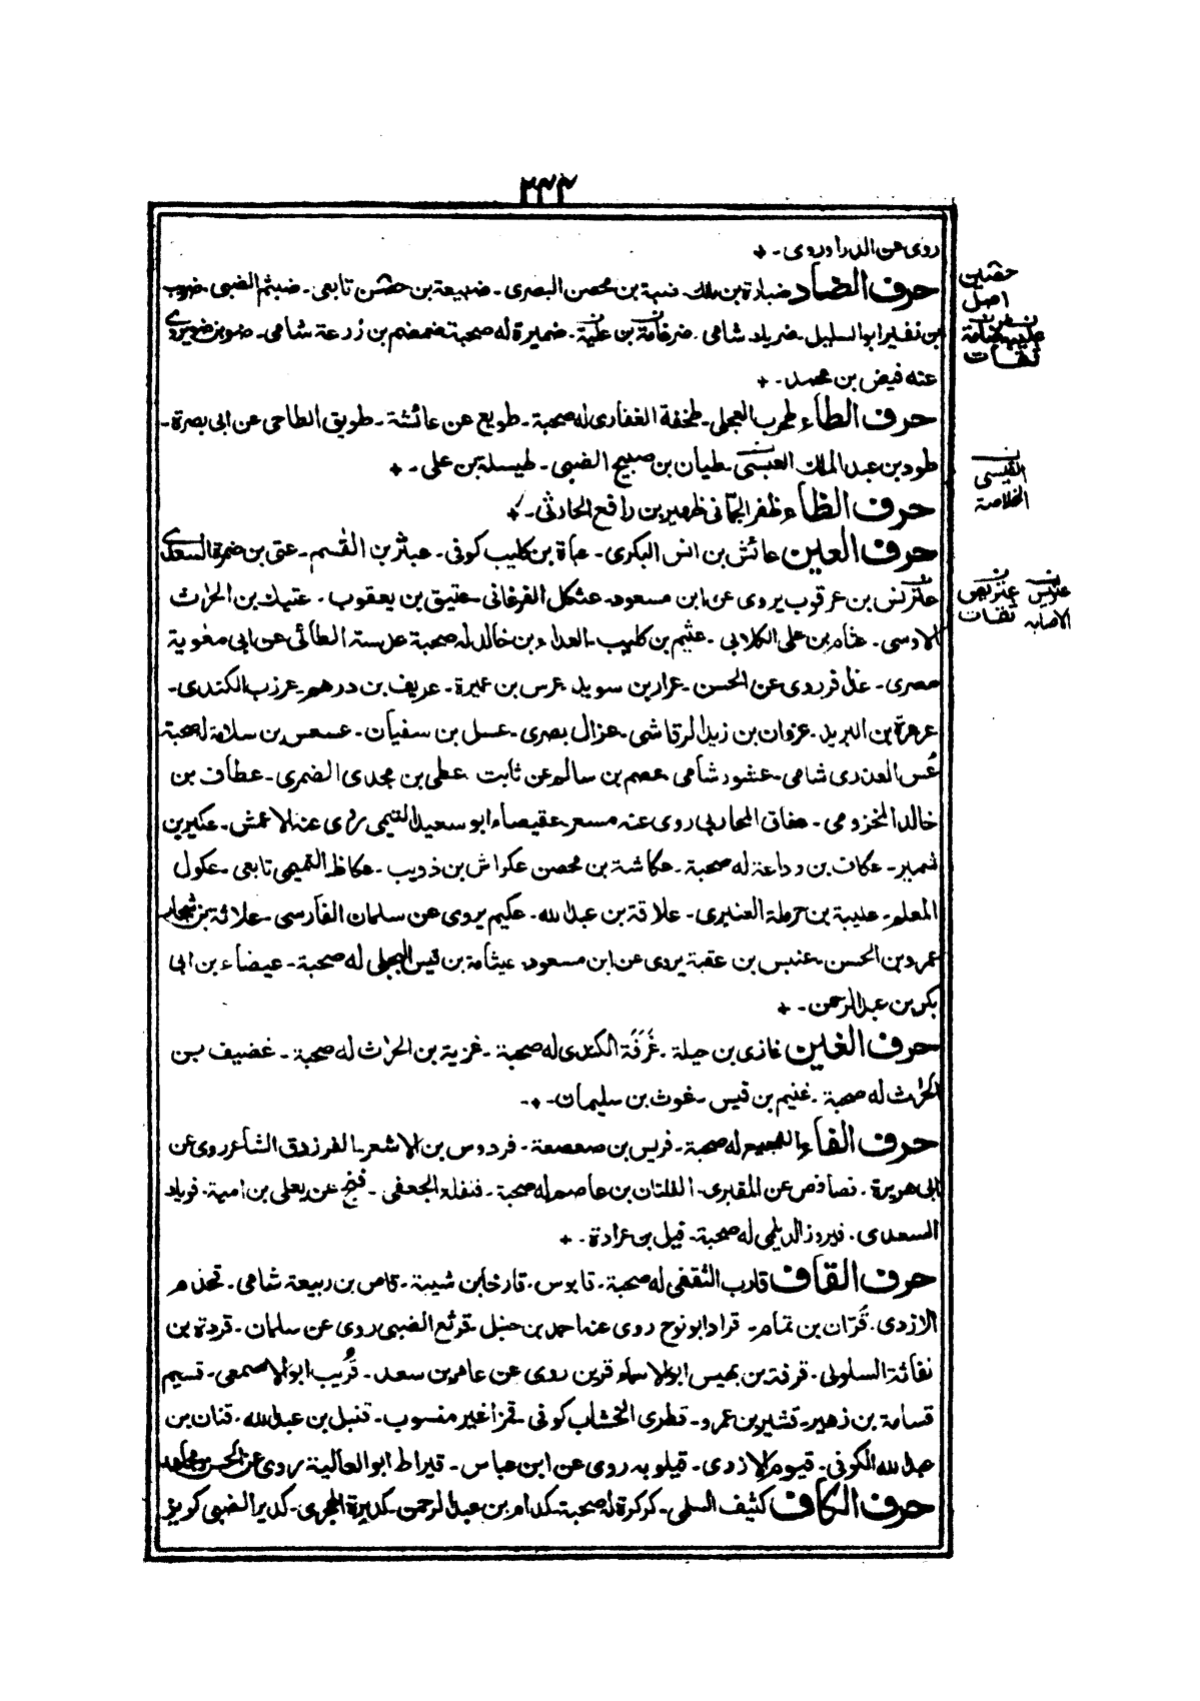 ٢٤٣
روى عن الدراوردى۔
حرف الضاد ضبارة بن مالك۔ ضبة بن محصن البصرى۔ ضبيعة بن حضين تابعى۔ ضبثم الضبى۔ ضريب
بن نفير ابو السليل۔ ضرياد شامى۔ ضرغامة بن علية۔ ضميرة له صحبة ضمضم بن زرعة شامى۔
عنه فيض بن محمد۔
حرف الطاء طحرب العجلى۔ طخفة الغفارى له صحبة۔ طويع عن عائشة۔ طويق الطاحى عن ابى بصرة۔
طود بن عبد الملك العبسى۔ طيان بن صبيح الضبى۔ طيسلة بن على۔
حرف الظاء ظفر الحمّانى ظهير بن رافع الحارثى۔
حرف العين عائش بن انس البكرى۔ عباة بن كليب كوفى۔ عبثر بن القسم۔ عتى بن ضمرة السعدى
عتريس بن عرقوب يروى عن ابن مسعود۔ عثكل الفرغانى۔ عتيق بن يعقوب۔ عتيك بن الحرث
الاوسى۔ عثام بن على الكلابى۔ عثيم بن كليب۔ العداء بن خالد له صحبة عدسة الطائى عن ابى مغوية
مصرى۔ عذافر روى عن الحسن۔ عرار بن سويد عرس بن عميرة۔ عريف بن درهم۔ عرزب الكندى۔
عرعرة بن البريد۔ عزوان بن زيد الرقاشى۔ عزال بصرى۔ عسل بن سفيان۔ عسعس بن سلامة له صحبة
عُس العذرى شامى۔ عشور شامى عصم بن سالم عن ثابت عطى بن مجدى الضمرى۔ عطاف بن
خالد المخزومى۔ عفاق المحاربى روى عنه مسعر۔ عقيصاء ابو سعيد التيمى روى عنه الاعمش۔ عكير بن
نمير۔ عكاف بن وداعة له صحبة۔ عكاشة بن محصن عكراش بن ذويب۔ عكاظ التميمى تابعى۔ عكول
المعلم۔ عليبة بن حرملة العنبرى۔ علاقة بن عبد الله۔ عكيم يروى عن سلمان الفارسى۔ علاثة بن
عمرو بن الحسن۔ عنبس بن عقبة يروى عن ابن مسعود۔ عيثامة بن قيس البجلى له صحبة۔ عيضاء بن ابى
بكر بن عبد الرحمن۔
حرف الغين غازى بن جبلة۔ غَرَفَة الكندى له صحبة۔ غزية بن الحرث له صحبة۔ غضيف بن
الحرث له صحبة۔ غنيم بن قيس۔ غوث بن سليمان۔
حرف الفاء الفجيع له صحبة۔ فريس بن صعصعة۔ فردوس بن الاشعر۔ الفرزدق الشاعر روى عن
ابى هريرة۔ فصافص عن المقبرى۔ الفلتان بن عاصم له صحبة۔ فنفلة الجعفى۔ فنج عن يعلى بن امية۔ فوياد
السعدى۔ فيروز الديلمى له صحبة۔ فيل بن عرادة۔
حرف القاف قارب الثقفى له صحبة۔ قابوس۔ قارخا بن شيبة۔ قاص بن ربيعة شامى۔ قحذم
الازدى۔ قُرّان بن تمام۔ قراد ابو نوح روى عنه احمد بن حنبل۔ قرثع الضبى روى عن سلمان۔ قردة بن
نفاثة السلولى۔ قرفة بن بهيس ابو الاسماء قرين روى عن عامر بن سعد۔ قُريب ابو الاصمعى۔ قسيم
قسامة بن زهير۔ قشير بن عمرو۔ قطرى الخشاب كوفى۔ قمز غير منسوب۔ قنبل بن عبد الله۔ قنان بن
عبد الله الكوفى۔ قيوم الازدى۔ قيلويه روى عن ابن عباس۔ قيراط ابو العالية روى عن الحسن ومجاهد
حرف الكاف كثيف السلمى۔ كركرة له صحبة۔ كدام بن عبد الرحمن۔ كديرة الهجرى۔ كدير الضبى كويز
حضين
اصل
ثقات
القيسى
الخلاصة
عتريس
الاصابه
عتريص
ثقات